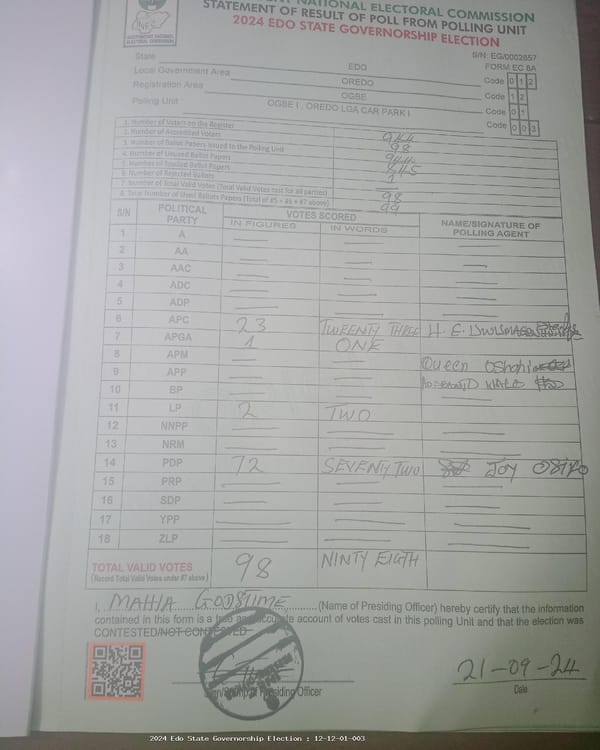 NATIONAL ELECTORAL COMMISSION
STATEMENT OF RESULT OF POLL FROM POLLING UNIT
2024 EDO STATE GOVERNORSHIP ELECTION
INEC
INDEPENDENT NATIONAL ELECTORAL COMMISSION
S/N: EG/0002657
FORM EC 8A
State EDO Code 0 1 2
Local Government Area OREDO Code 1 2
Registration Area OGBE Code 0 1
Polling Unit OGBE I , OREDO LGA CAR PARK I Code 0 0 3
1. Number of Voters on the Register 944
2. Number of Accredited Voters 98
3. Number of Ballot Papers Issued to the Polling Unit 944
4. Number of Unused Ballot Papers 845
5. Number of Spoiled Ballot Papers 1
6. Number of Rejected Ballots —
7. Number of Total Valid Votes (Total Valid Votes cast for all parties) 98
8. Total Number of Used Ballots Papers (Total of #5 + #6 + #7 above) 99
S/N POLITICAL PARTY VOTES SCORED NAME/SIGNATURE OF POLLING AGENT
IN FIGURES IN WORDS
1 A — — —
2 AA — — —
3 AAC — — —
4 ADC — — —
5 ADP — — —
6 APC 23 TWEENTY THREE H. E.
7 APGA 1 ONE
8 APM — —
9 APP — — Queen
10 BP — —
11 LP 2 TWO
12 NNPP — — —
13 NRM — — —
14 PDP 72 SEVENTY TWO JOY
15 PRP — — —
16 SDP — — —
17 YPP — — —
18 ZLP — — —
TOTAL VALID VOTES 98 NINTY EIGTH
(Record Total Valid Votes under #7 above)
I, MAHIA GODSTIME (Name of Presiding Officer) hereby certify that the information
contained in this form is a true and accurate account of votes cast in this polling Unit and that the election was
CONTESTED/NOT CONTESTED
21-09-24
Sign/Stamp of Presiding Officer Date
2024 Edo State Governorship Election : 12-12-01-003